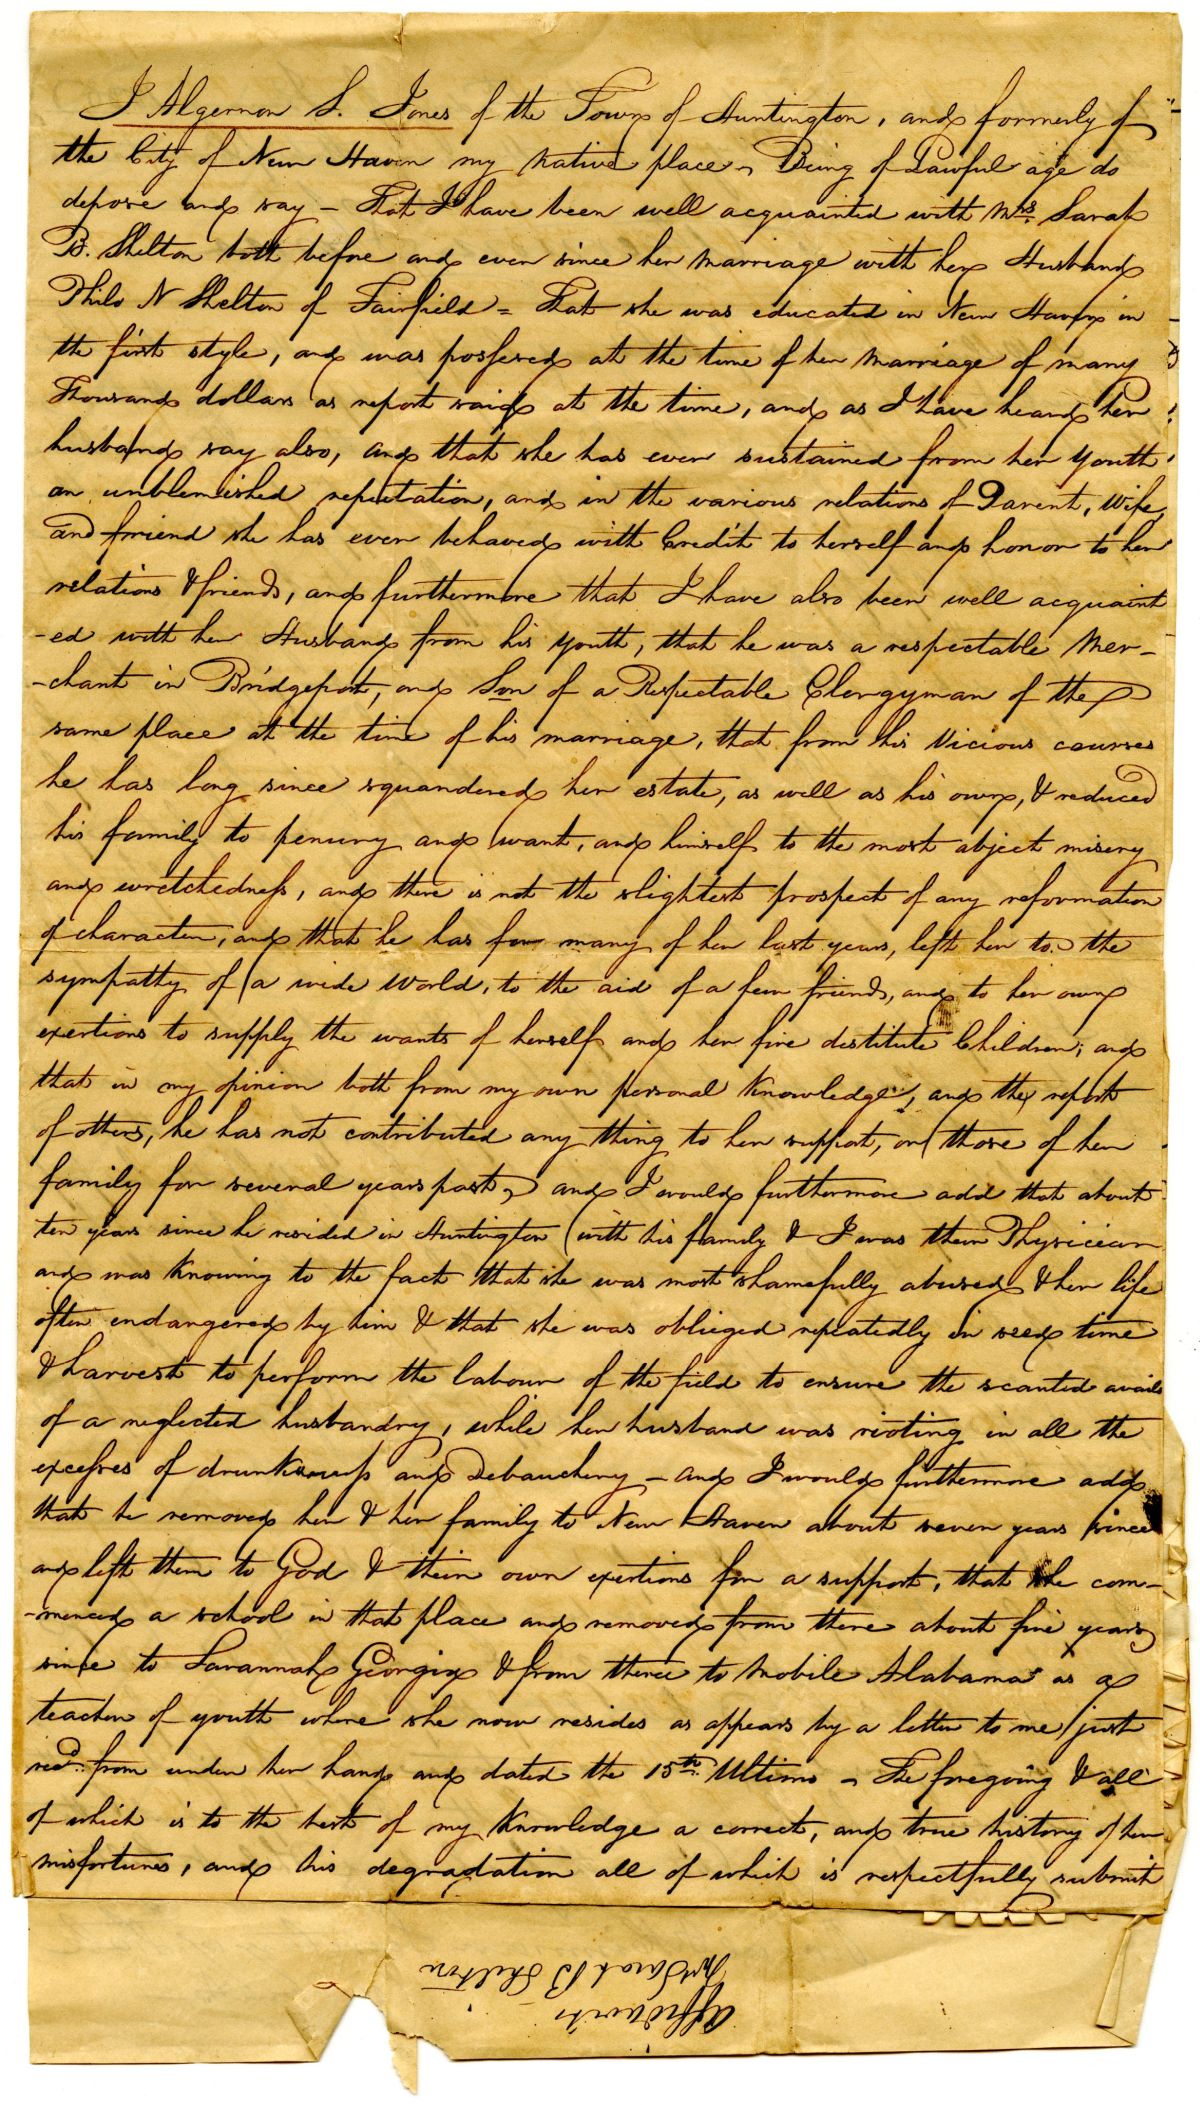 I Algernon S. Jones of the Town of Huntington, and formerly of
the City of New Haven my native place – Being of Lawful age do
depose and say – That I have been well acquainted with Mrs. Sarah
B. Shelton both before and ever since her marriage with her Husband
Philo N Shelton of Fairfield = That she was educated in New Haven in
the first style, and was possesed at the time of her marriage of many
Thousand dollars as report said at the time, and as I have heard her
husband say also, and that she has ever sustained from her youth
an unblemished reputation, and in the various relations of Parent, Wife,
and friend she has ever behaved with Credit to herself and honor to her
relations & friends, and furthermore that I have also been well acquaint
-ed with her Husband from his youth, that he was a respectable Mer-
-chant in Bridgeport, and Son of a Respectable Clergyman of the
same place at the time of his marriage, that from his Vicious courses
he has long since squandered her estate, as well as his own, & reduced
his family to penury and want, and himself to the most abject misery
and wretchedness, and there is not the slightest prospect of any reformation
of character, and that he has for many of her last years, left her to the
sympathy of a wide world, to the aid of a few friends, and to her own
exertions to supply the wants of herself and her five destitute Children; and
that in my opinion both from my own personal Knowledge, and the report
of others, he has not contributed any thing to her support, or those of her
family for several years past, and I would furthermore add that about
ten years since he resided in Huntington with his family & I was their Physician
and was Knowing to the fact that she was most shamefully abused & her life
often endangered by him & that she was oblieged repeatedly in seed time
& harvest to perform the labour of the field to ensure the scanted avails
of a neglected husbandry, while her husband was rioting in all the
excesses of drunkenness and Debauchery – and I would furthermore add
that he removed her & her family to New Haven about seven years since
and left them to God & their own exertions for a support, that she com-
-menced a school in that place and removed from there about five years
since to Savannah Georgia & from thence to Mobile Alabama as a
teacher of youth where she now resides as appears by a letter to me just
recd. from under her hand and dated the 15th. Ultimo – The foregoing & all
of which is to the best of my Knowledge a correct, and true history of her
misfortunes, and his degradation all of which is respectfully submit
Affidavits
Mrs Sarah B Shelton